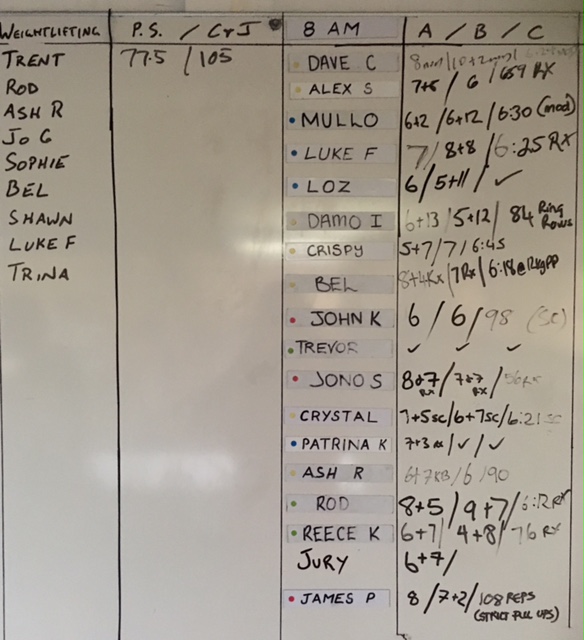 WEIGHTLIFTING P.S. / C+J 8 AM A / B / C
TRENT 77.5 / 105 DAVE C
ROD ALEX S 7+5 / 6 / 659 RX
ASH R MULLO 6+2 / 6+12 / 6:30 (mod)
JO G LUKE F 7 / 8+8 / 6:25 RX
SOPHIE
BEL LOZ 6 / 5+11 / ✓
SHAWN DAMO I 6+13 / 5+12 / 84 Ring Rows
LUKE F CRISPY 5+7 / 7 / 6:45
TRINA BEL 8+4Rx / 7Rx / 6:18@
JOHN K 6 / 6 / 98 (SC)
TREVOR ✓ ✓ ✓
JONO S 8+7 RX / 7+7 RX / 56 RX
CRYSTAL 7+5sc / 6+7sc / 6:21 sc
PATRINA K 7+3 RX / ✓ / ✓
ASH R 6+7KB / 6 / 90
ROD 8+5 / 9+7 / 6:12 RX
REECE K 6+7 / 4+8 / 76 RX
JURY 6+7 /
JAMES P 8 / 7+2 / 108 REPS
(STRICT PULL UPS)